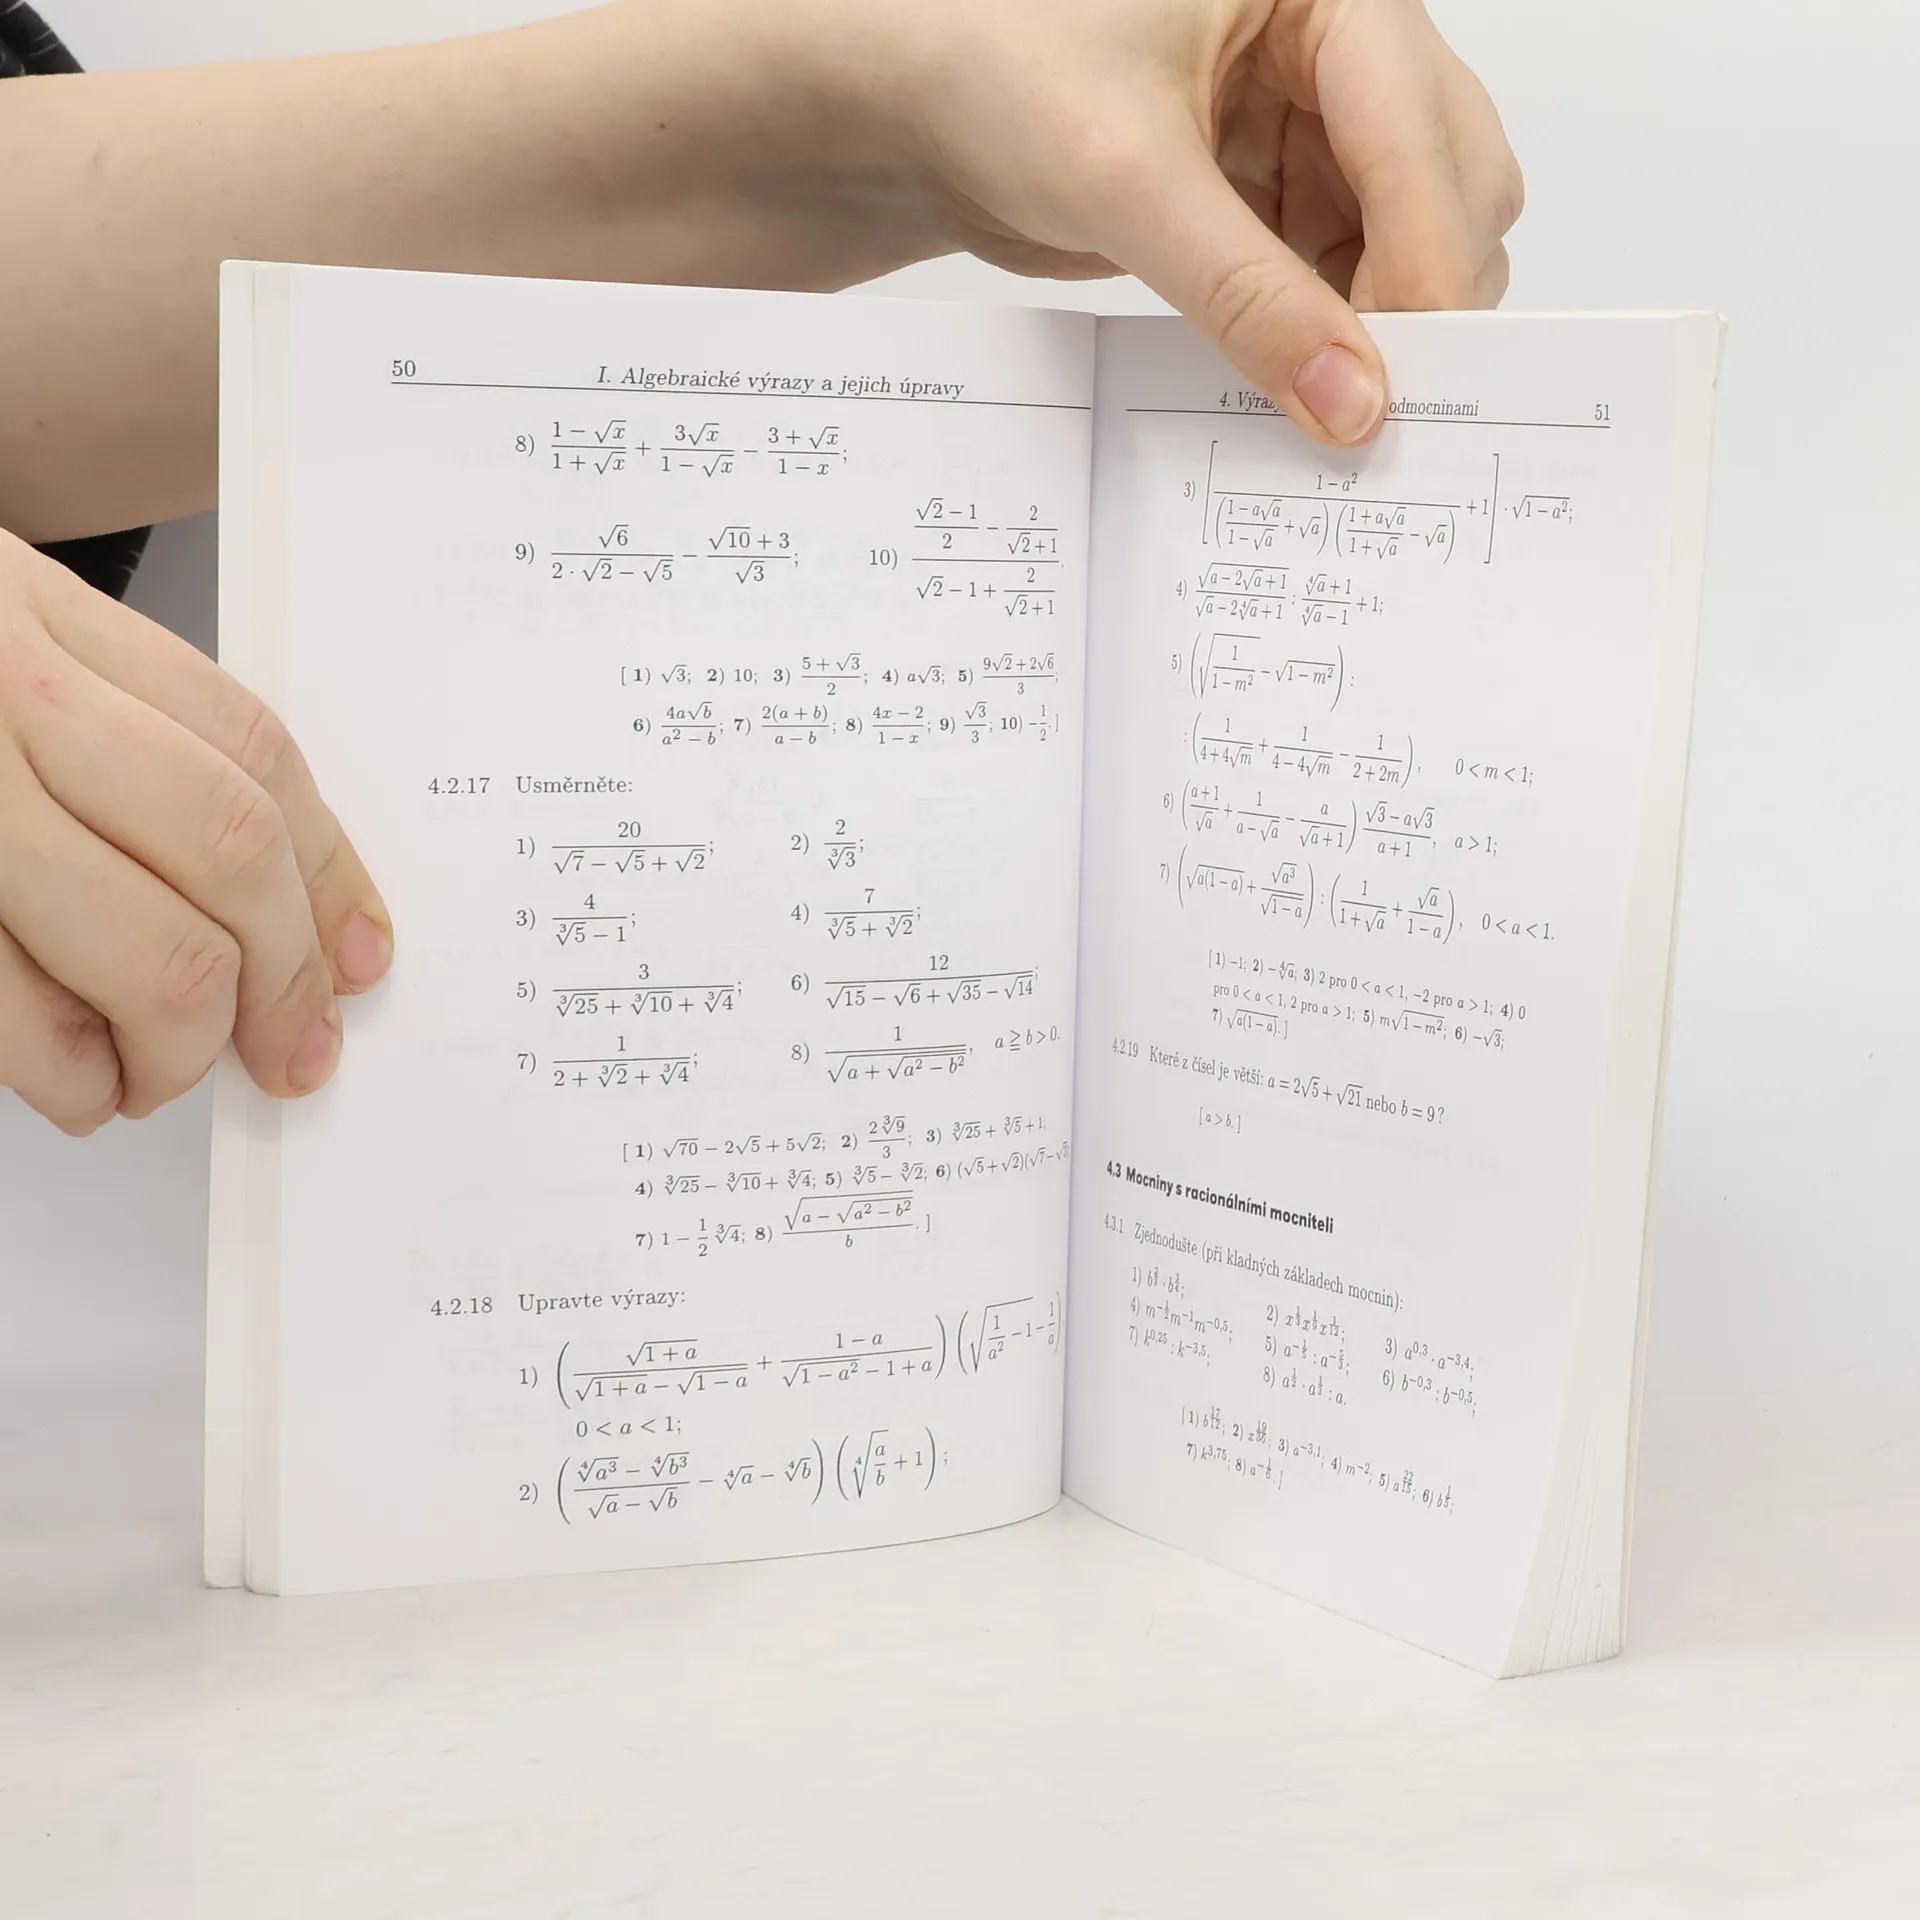 50 I. Algebraické výrazy a jejich úpravy
8) \frac{1-\sqrt{x}}{1+\sqrt{x}} + \frac{3\sqrt{x}}{1-\sqrt{x}} - \frac{3+\sqrt{x}}{1-x};
9) \frac{\sqrt{6}}{2\cdot\sqrt{2}-\sqrt{5}} - \frac{\sqrt{10}+3}{\sqrt{3}}; 10) \frac{\frac{\sqrt{2}-1}{2} - \frac{2}{\sqrt{2}+1}}{\sqrt{2}-1+\frac{2}{\sqrt{2}+1}}.
[ 1) √3; 2) 10; 3) \frac{5+\sqrt{3}}{2}; 4) a√3; 5) \frac{9\sqrt{2}+2\sqrt{6}}{3};
6) \frac{4a\sqrt{b}}{a^2-b}; 7) \frac{2(a+b)}{a-b}; 8) \frac{4x-2}{1-x}; 9) \frac{\sqrt{3}}{3}; 10) -\frac{1}{2}. ]
4.2.17 Usměrněte:
1) \frac{20}{\sqrt{7}-\sqrt{5}+\sqrt{2}}; 2) \frac{2}{\sqrt[3]{3}};
3) \frac{4}{\sqrt[3]{5}-1}; 4) \frac{7}{\sqrt[3]{5}+\sqrt[3]{2}};
5) \frac{3}{\sqrt[3]{25}+\sqrt[3]{10}+\sqrt[3]{4}}; 6) \frac{12}{\sqrt{15}-\sqrt{6}+\sqrt{35}-\sqrt{14}};
7) \frac{1}{2+\sqrt[3]{2}+\sqrt[3]{4}}; 8) \frac{1}{\sqrt{a+\sqrt{a^2-b^2}}}, a ≧ b > 0.
[ 1) √70 − 2√5 + 5√2; 2) \frac{2\sqrt[3]{9}}{3}; 3) ∛25 + ∛5 + 1;
4) ∛25 − ∛10 + ∛4; 5) ∛5 − ∛2; 6) (√5 + √2)(√7 −
7) 1 − \frac{1}{2} ∛4; 8) \frac{\sqrt{a-\sqrt{a^2-b^2}}}{b}. ]
4.2.18 Upravte výrazy:
1) \left(\frac{\sqrt{1+a}}{\sqrt{1+a}-\sqrt{1-a}} + \frac{1-a}{\sqrt{1-a^2}-1+a}\right)\left(\sqrt{\frac{1}{a^2}-1}-\frac{1}{a}\right)
0 < a < 1;
2) \left(\frac{\sqrt[4]{a^3}-\sqrt[4]{b^3}}{\sqrt{a}-\sqrt{b}} - \sqrt[4]{a} - \sqrt[4]{b}\right)\left(\sqrt[4]{\frac{a}{b}}+1\right);
4. Výraz odmocninami 51
3) \left[\frac{1-a^2}{\left(\frac{1-a\sqrt{a}}{1-\sqrt{a}}+\sqrt{a}\right)\left(\frac{1+a\sqrt{a}}{1+\sqrt{a}}-\sqrt{a}\right)}+1\right]\cdot\sqrt{1-a^2};
4) \frac{\sqrt{a-2\sqrt{a}+1}}{\sqrt{\sqrt{a}-2\sqrt[4]{a}+1}} : \frac{\sqrt[4]{a}+1}{\sqrt[4]{a}-1} + 1;
5) \left(\sqrt{\frac{1}{1-m^2}}-\sqrt{1-m^2}\right) :
: \left(\frac{1}{4+4\sqrt{m}}+\frac{1}{4-4\sqrt{m}}-\frac{1}{2+2m}\right), 0 < m < 1;
6) \left(\frac{a+1}{\sqrt{a}}+\frac{1}{a-\sqrt{a}}-\frac{a}{\sqrt{a}+1}\right)\frac{\sqrt{3}-a\sqrt{3}}{a+1}, a > 1;
7) \left(\sqrt{a(1-a)}+\frac{\sqrt{a^3}}{\sqrt{1-a}}\right):\left(\frac{1}{1+\sqrt{a}}+\frac{\sqrt{a}}{1-a}\right), 0 < a < 1.
[ 1) −1; 2) −∜a; 3) 2 pro 0 < a < 1, −2 pro a > 1; 4) 0
pro 0 < a < 1, 2 pro a > 1; 5) m√(1 − m²); 6) −√3;
7) √(a(1 − a)). ]
4.2.19 Které z čísel je větší: a = 2√5 + √21 nebo b = 9?
[ a > b. ]
4.3 Mocniny s racionálními mocniteli
4.3.1 Zjednodušte (při kladných základech mocnin):
1) b^{\frac{2}{3}} · b^{\frac{3}{4}}; 2) x^{\frac{1}{3}}x^{\frac{1}{9}}x^{\frac{1}{12}}; 3) a^{0,3} · a^{−3,4};
4) m^{−\frac{1}{2}}m^{−1}m^{−0,5}; 5) 6) b^{−0,3} : b^{−0,5};
7) k^{0,25} : k^{−3,5}; 8) a^{\frac{1}{2}} · a^{\frac{1}{3}} : a.
[ 1) b^{\frac{17}{12}}; 2) x^{\frac{19}{36}}; 3) a^{−3,1}; 4) m^{−2}; 5) a^{\frac{22}{15}}; 6) b^{\frac{1}{5}};
7) k^{3,75}; 8) a^{−\frac{1}{6}}. ]